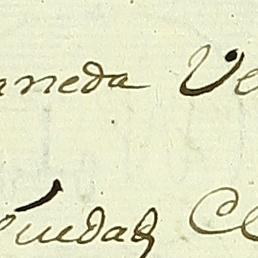 aneda Ve
Ciudad Cl